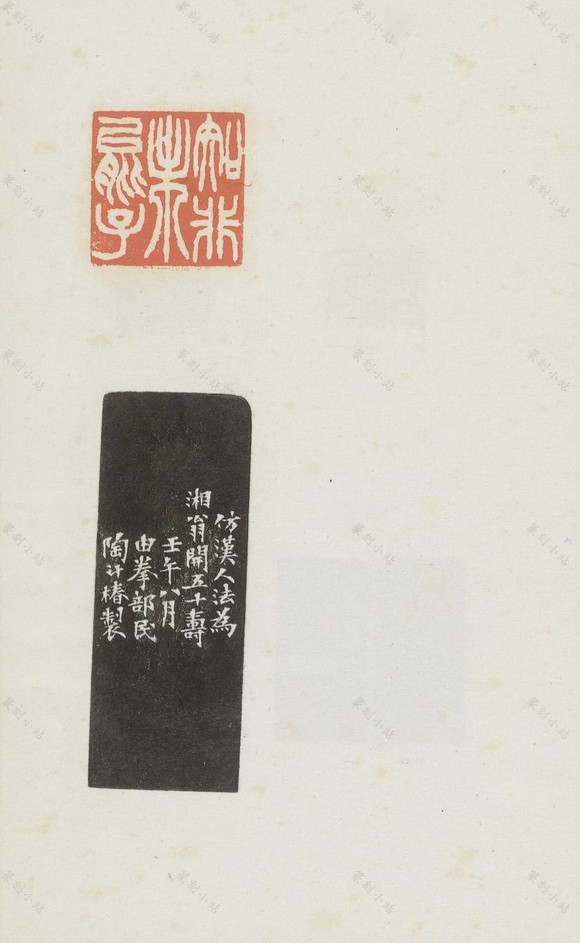 知非
仿漢人法為
湘翁開五十壽
壬午八月
由拳部民
陶計椿製
篆刻小站